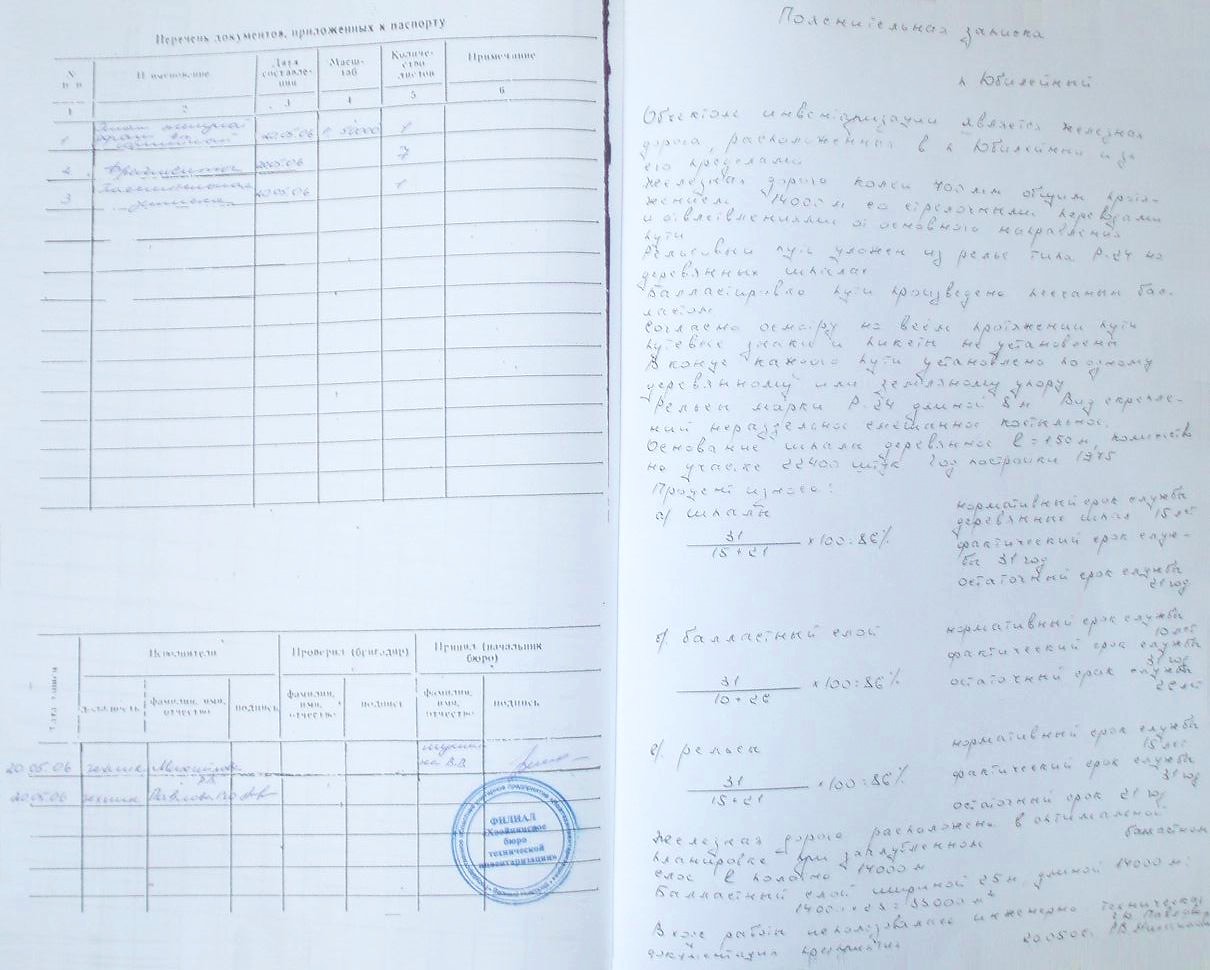 Перечень документов, приложенных к паспорту
N п п
Наименование
Дата составле-
ния
Масш-
таб
Количе-
ство
листов
Примечание
1 2 3 4 5 6
1 20.05.06 1: 50000 1
2 Фрагменты 20.05.06 7
3 Пояснительная
записка 20.05.06 1
Дата записи
Исполнители
Проверил (бригадир)
Принял (начальник
бюро)
должность
фамилия, имя,
отчество
подпись
фамилия,
имя,
отчество
подпись
фамилия,
имя,
отчество
подпись
20.05.06 техник
20.05.06 техник Павлова
ФИЛИАЛ
«Хвойнинское
бюро
технической
инвентаризации»
Пояснительная записка
п Юбилейный
Объектом инвентаризации является железная
дорога, расположенная в п Юбилейный и за
его пределами
Железная дорога колеи 750 мм общим протя-
жением 14000 м со стрелочными переводами
и ответвлениями от основного направления
пути
Рельсовый путь уложен из рельс типа Р-24 на
деревянных шпалах
Балластировка пути произведена песчаным бал-
ластом
Согласно осмотру на всём протяжении пути
путевые знаки и пикеты не установлены
В конце каждого пути установлено по одному
деревянному или земляному упору
Рельсы марки Р-24 длиной 8 м Вид скрепле-
ний нераздельное смешанное костыльное.
Основание шпалы деревянное l = 150 м, количество
на участке 22400 штук Год постройки 1975
Процент износа:
а) шпалы
31
15 + 21
× 100 = 86%
нормативный срок службы
деревянных шпал 15 лет
фактический срок служ-
бы 31 год
остаточный срок службы
21 год
б) балластный слой
31
10 + 26
× 100 = 86%
нормативный срок службы
10 лет
фактический срок службы
31 год
остаточный срок службы
26 лет
в) рельсы
31
15 + 21
× 100 = 86%
нормативный срок службы
15 лет
фактический срок службы
31 год
остаточный срок 21 год
Железная дорога расположена в оптимальной
планировке при заглубленном балластном
слое в полотно 14000 м
Балластный слой шириной 2.5 м, длиной 14000 м:
14000 × 2.5 = 35000 м²
В ходе работы использовалась инженерно техническая
документация предприятия
20.05.06